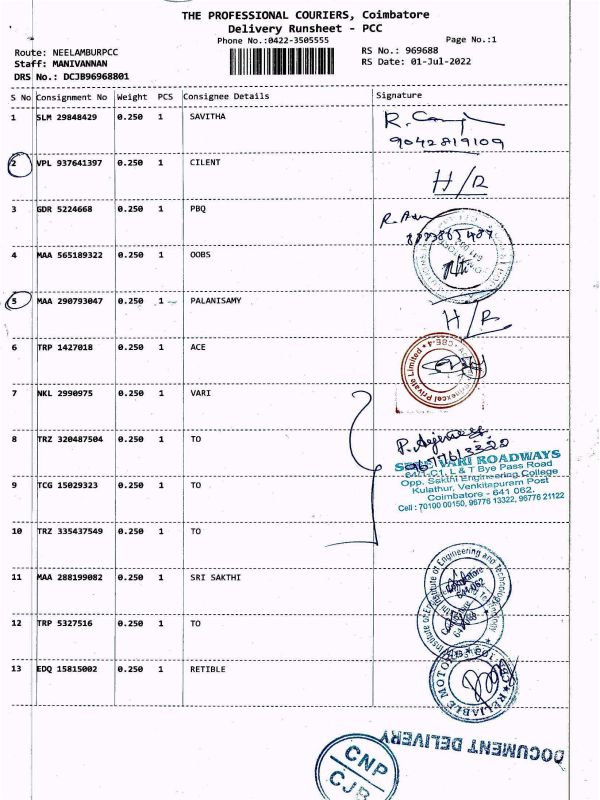 THE PROFESSIONAL COURIERS, Coimbatore
Delivery Runsheet - PCC
Phone No.:0422-3505555
Page No.:1
Route: NEELAMBURPCC
RS No.: 969688
Staff: MANIVANNAN
RS Date: 01-Jul-2022
DRS No.: DCJB96968801
S No Consignment No Weight PCS Consignee Details Signature
1 SLM 29848429 0.250 1 SAVITHA
9042819109
2 VPL 937641397 0.250 1 CILENT
H/R
3 GDR 5224668 0.250 1 PBQ
4 MAA 565189322 0.250 1 OOBS
5 MAA 290793047 0.250 1 PALANISAMY
H/R
6 TRP 1427018 0.250 1 ACE
Private Limited * CBE-4
7 NKL 2990975 0.250 1 VARI
8 TRZ 320487504 0.250 1 TO
VARI ROADWAYS
L & T Bye Pass Road
Opp. Sakthi Engineering College
Kulathur, Venkitapuram Post
Coimbatore - 641 062.
Cell : 70100 00150, 96776 13322, 96778 21122
9 TCG 15029323 0.250 1 TO
10 TRZ 335437549 0.250 1 TO
11 MAA 288199082 0.250 1 SRI SAKTHI
Institute of Engineering and Technology
12 TRP 5327516 0.250 1 TO
13 EDQ 15815002 0.250 1 RETIBLE
RELIABLE MOTORS
DOCUMENT DELIVERY
CNP
CJB